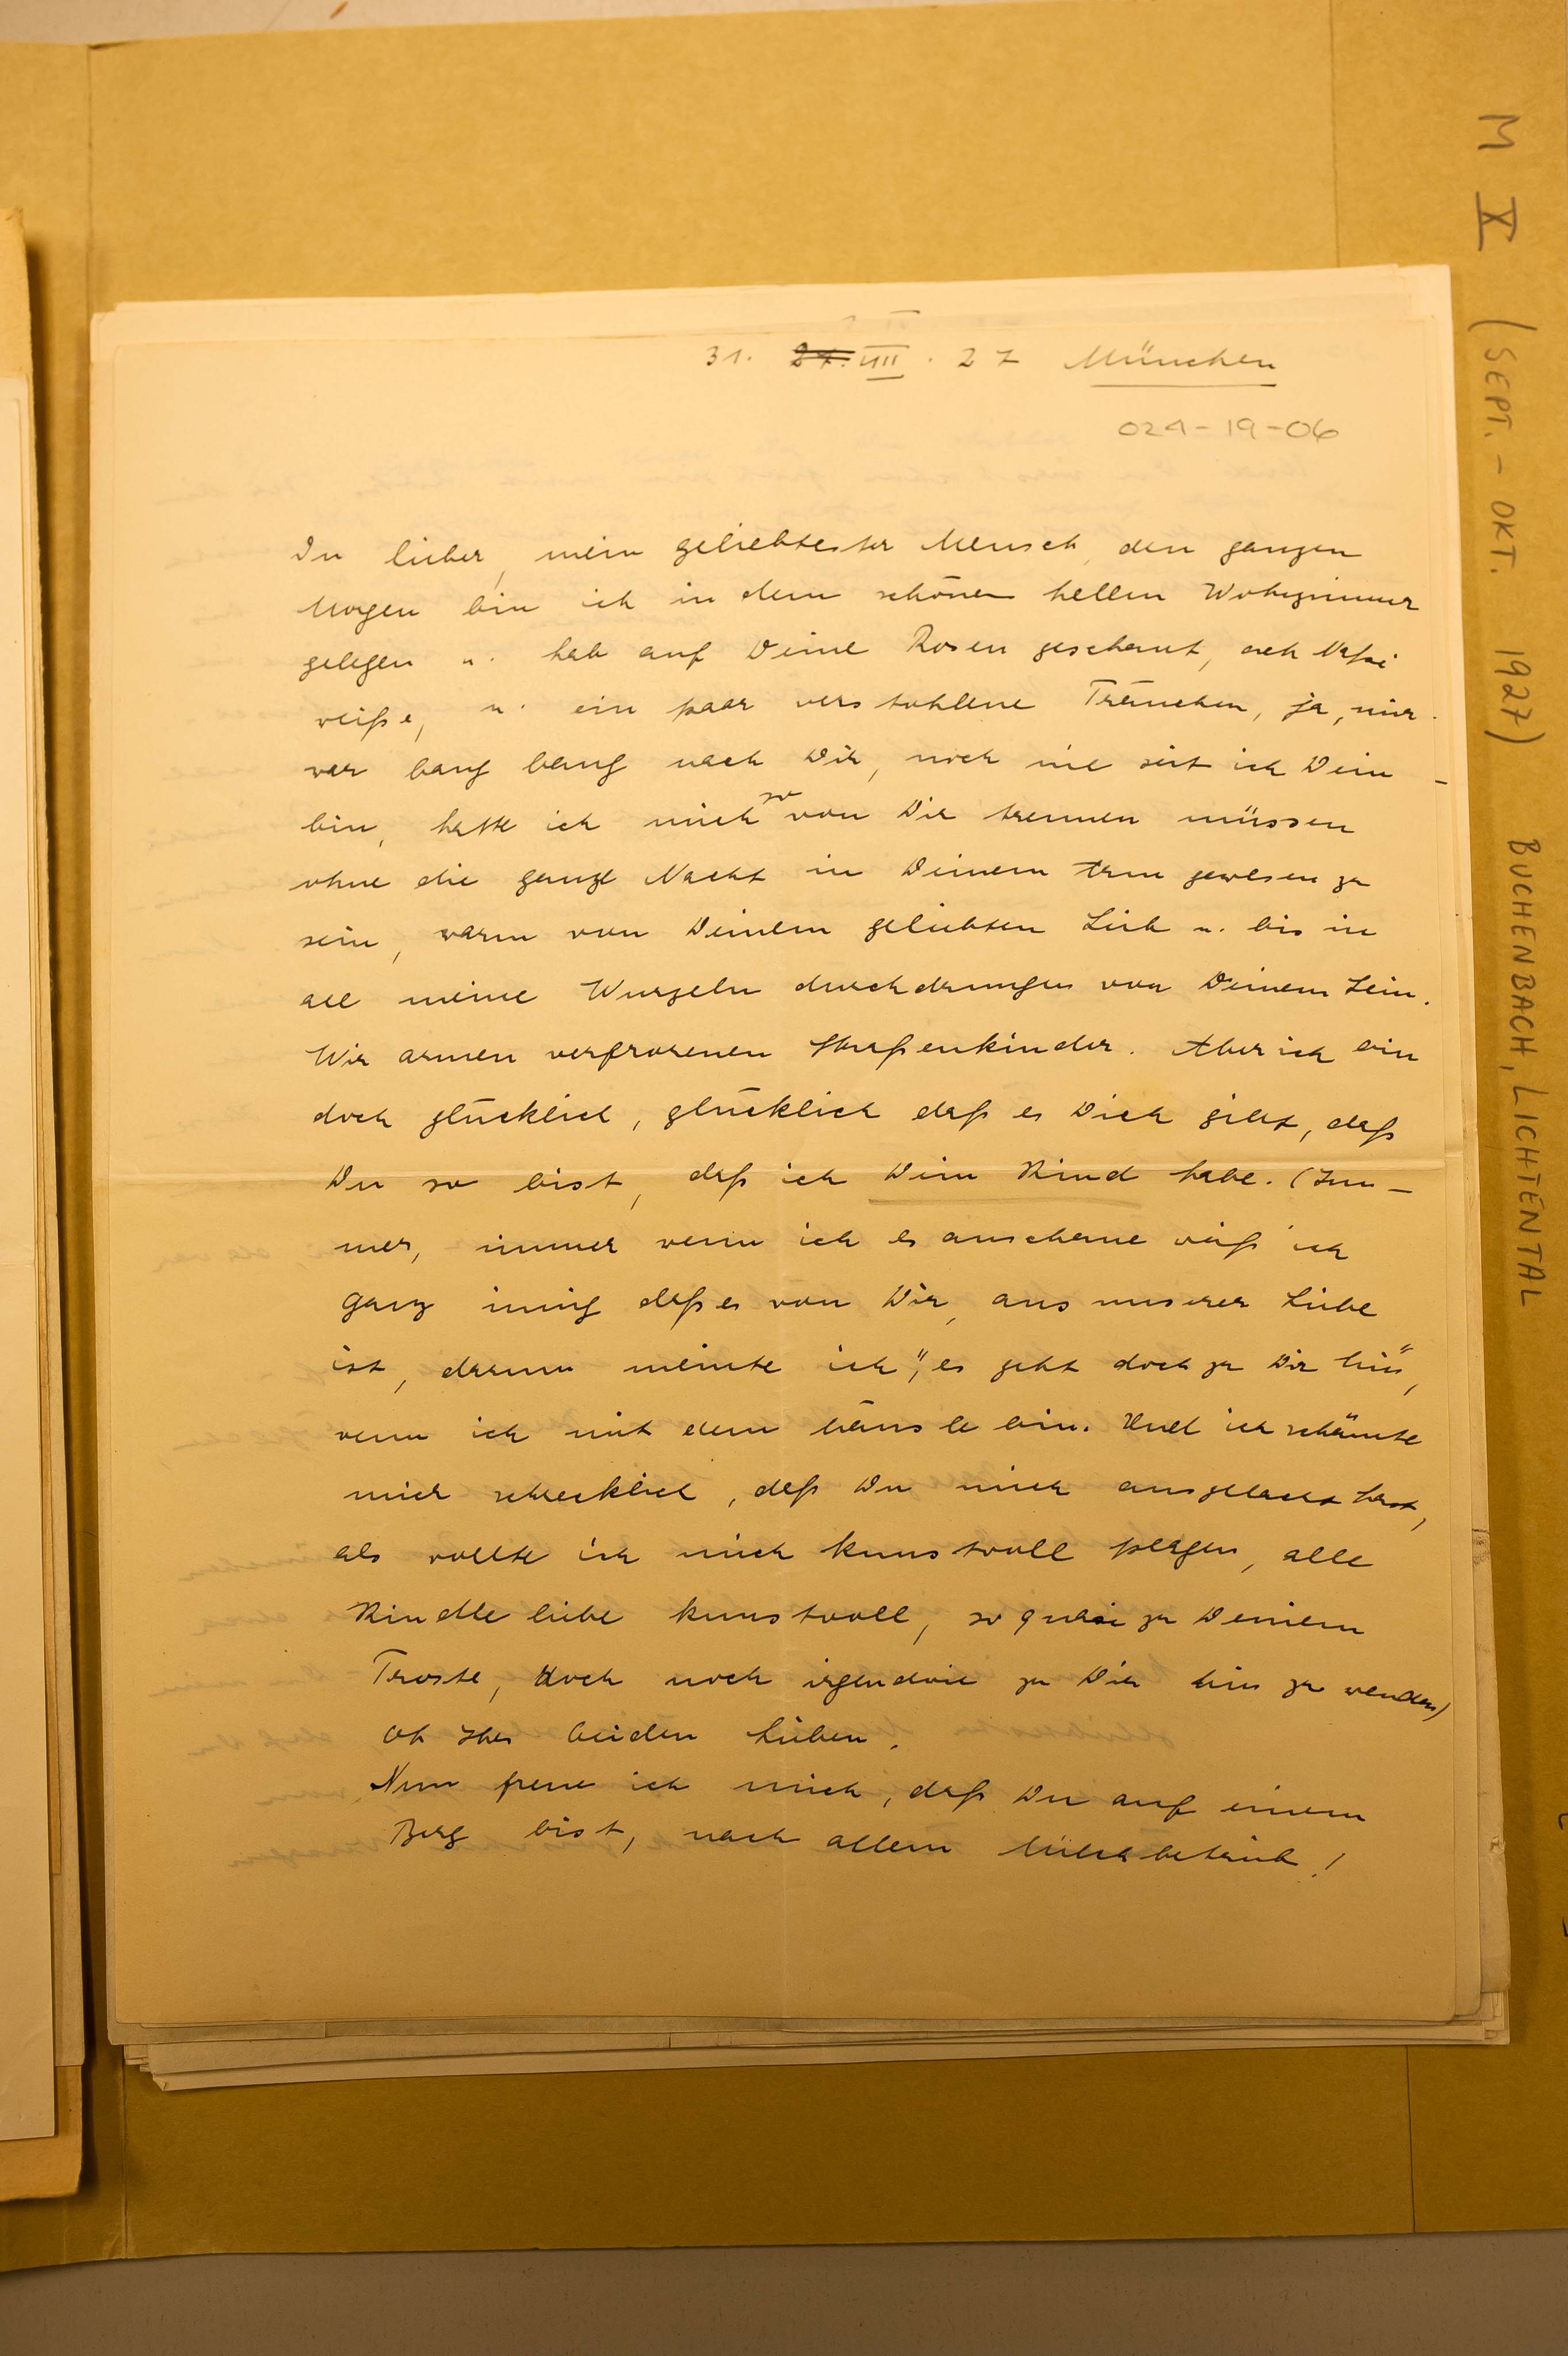 31. VIII. 27 München
024-19-06
Du lieber, mein geliebtester Mensch, den ganzen
Morgen bin ich in dem schönen hellen Wohnzimmer
gelegen u. hab auf Deine Rosen geschaut, ach
weiße, u. ein paar verstohlene Tränchen, ja, mir
war bang bang nach Dir, noch nie seit ich Dein
bin, hatte ich mich so von Dir trennen müssen
ohne die ganze Nacht in Deinem Arm gewesen zu
sein, warm von Deinem geliebten Leib u. bis in
all meine Wurzeln durchdrungen von Deinem Sein.
Wir armen verfrorenen Straßenkinder. Aber ich bin
doch glücklich, glücklich daß es Dich gibt, daß
Du so bist, daß ich Dein Kind habe. (Im-
mer, immer wenn ich es anschaue weiß ich
ganz innig daß es von Dir, aus unserer Liebe
ist, darum meinte ich, „es geht doch zu Dir hin",
wenn ich mit dem bin. Und ich schämte
mich schrecklich, daß Du mich ausgelacht hast,
als wollte ich mich kunstvoll plagen, alle
Kindleliebe kunstvoll, so quasi zu Deinem
Troste, doch noch irgendwie zu Dir hin zu wenden)
Oh Ihr beiden Lieben.
Nun freue ich mich, daß Du auf einem
Berg bist, nach allem !
M X (SEPT. - OKT. 1927) BUCHENBACH, LICHTENTAL